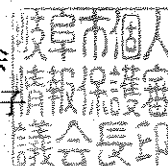 岐阜市個人
情報保護審
議会長印